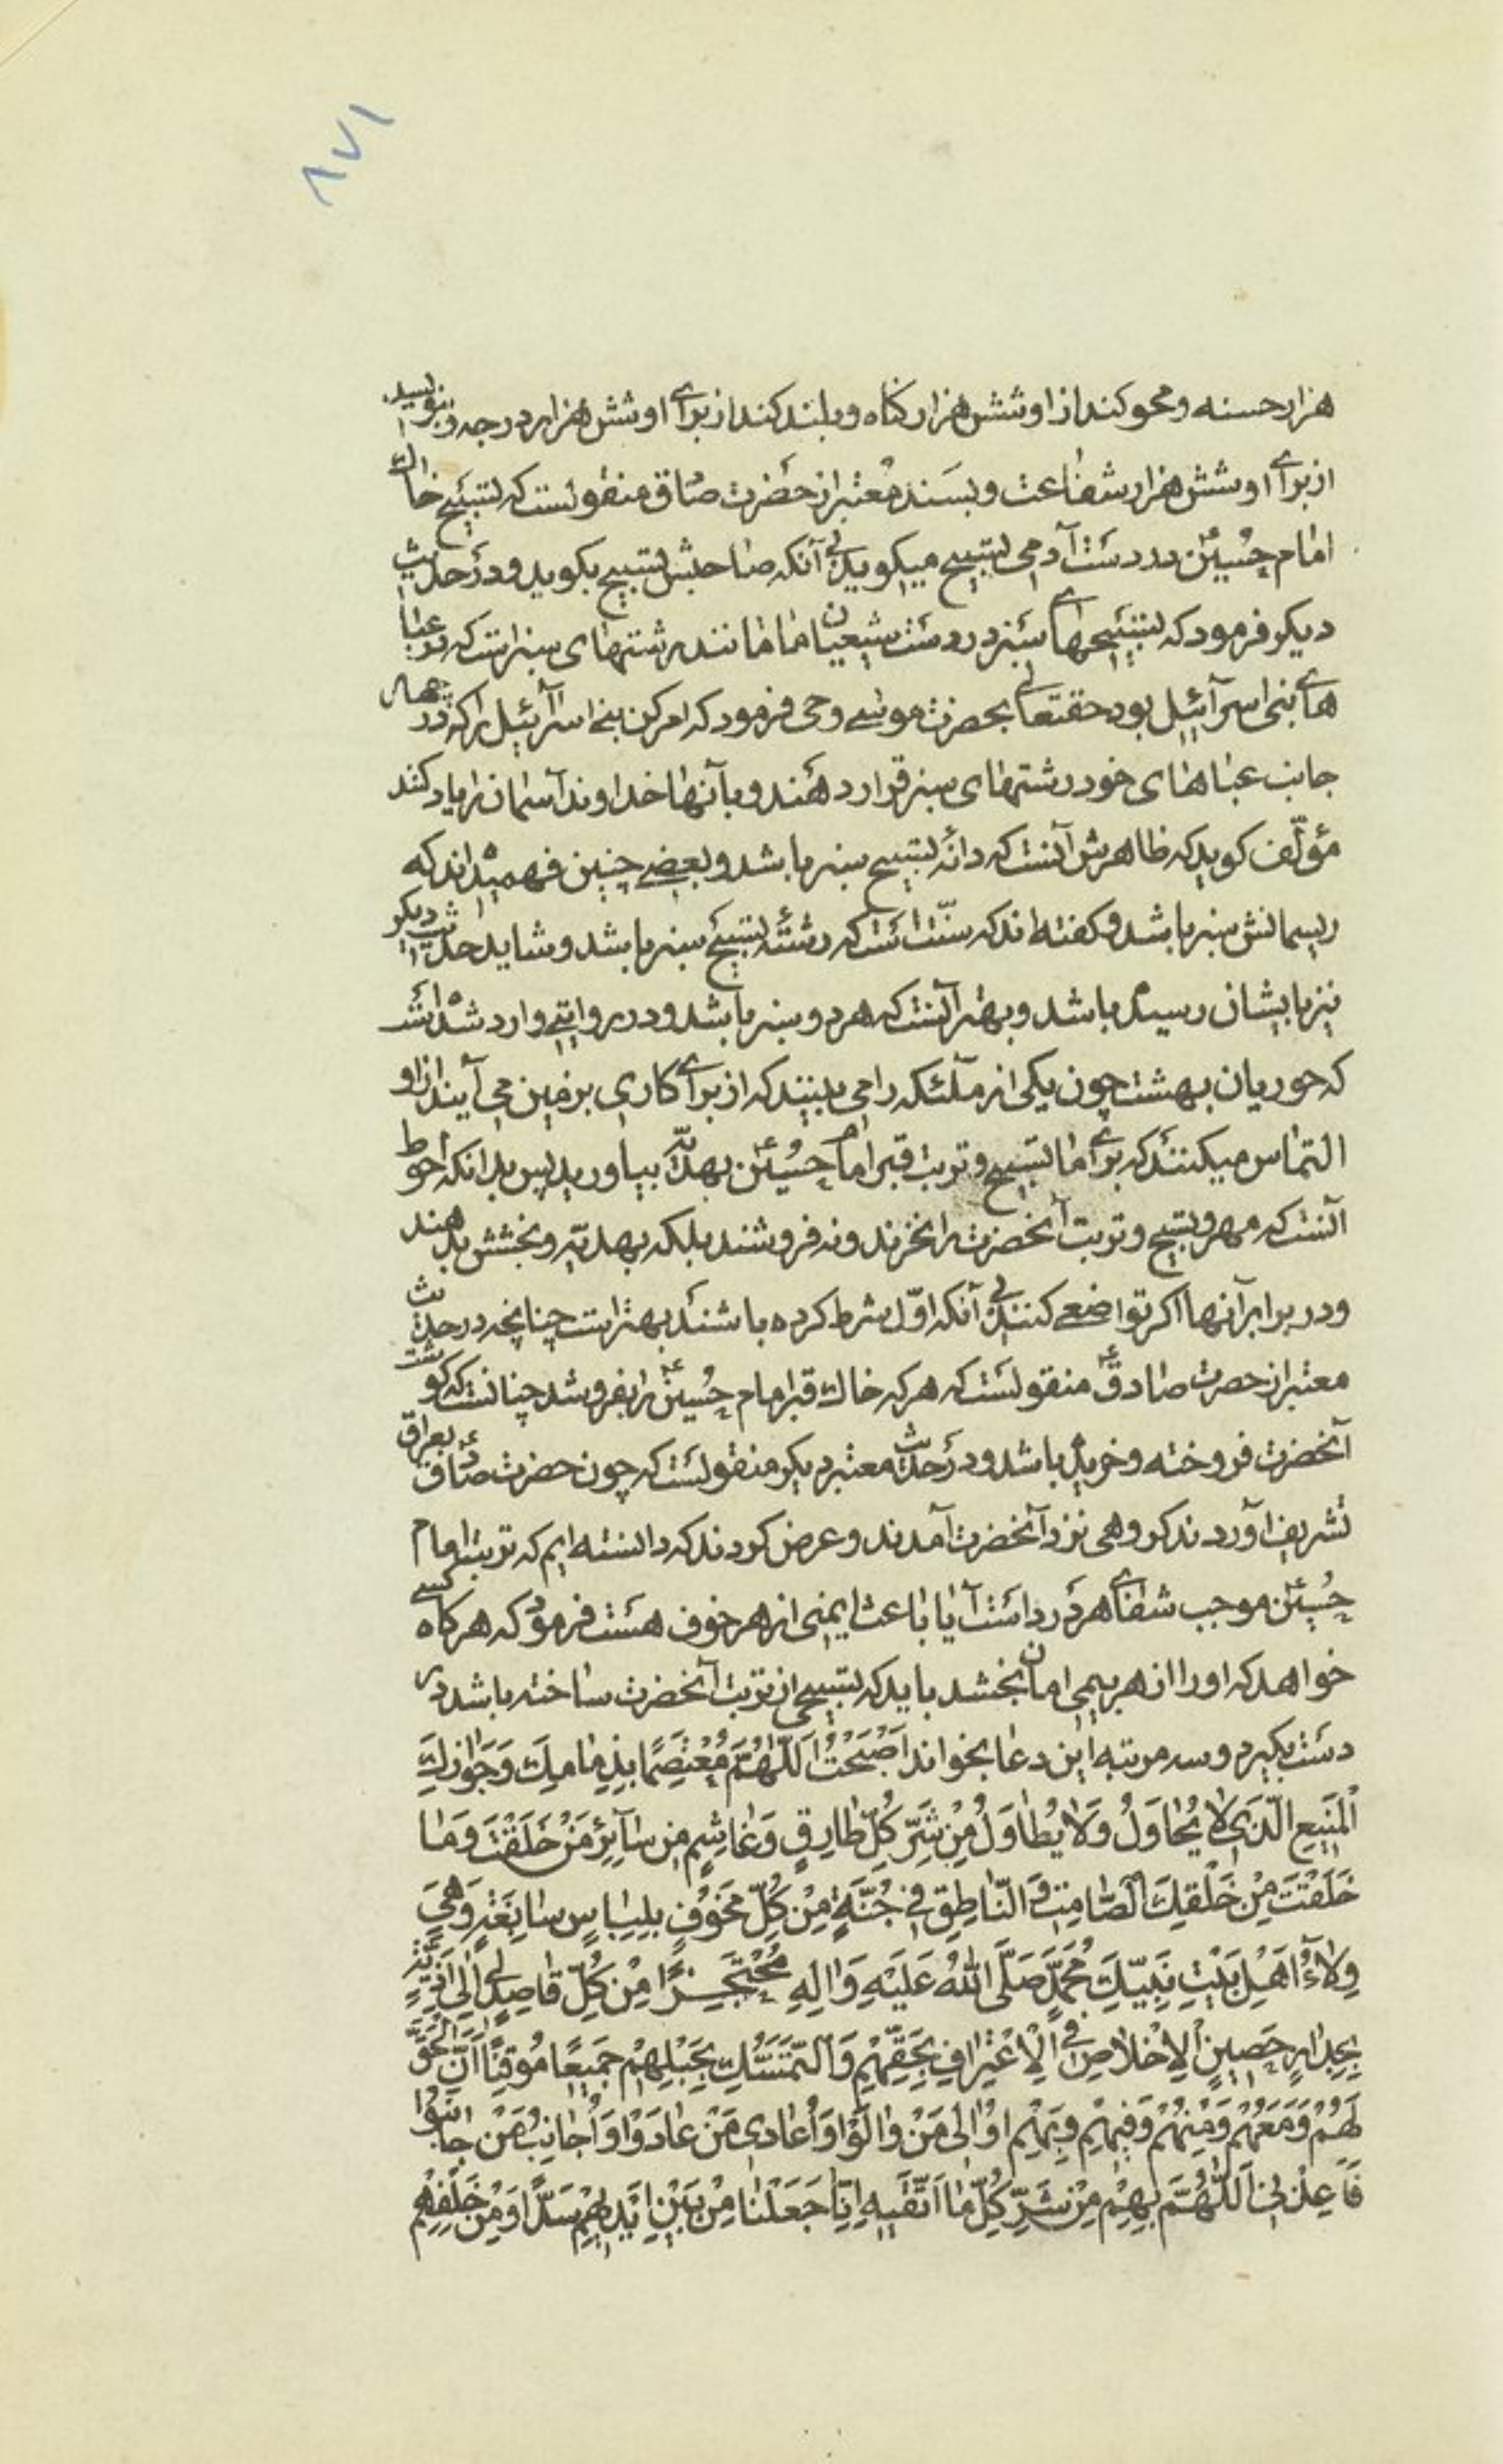 ۸۷۱
هزار حسنه و محو کند از او شش هزار گناه و بلند کند از برای او شش هزار درجه و بنویسد
از برای او شش هزار شفاعت و بسند معتبر از حضرت صادق منقولست که تسبیح خاک
امام حسین ع در دست آدمی تسبیح میگوید بی آنکه صاحبش تسبیح بگوید و در حدیث
دیگر فرمود که تسبیحهای سبز در دست شیعیان ما مانند رشتهای سبز است که در عبا
های بنی اسرآئیل بود حقتعالی بحضرت موسی وحی فرمود که امر کن بنی اسرآئیل را که در چهار
جانب عباهای خود رشتهای سبز قرار دهند و بآنها خداوند آسمان را یاد کنند
مؤلّف گوید که ظاهرش آنست که دانهٔ تسبیح سبز باشد و بعضی چنین فهمیده‌اند که
ریسمانش سبز باشد و گفته‌اند که سنّت است که رشتهٔ تسبیح سبز باشد و شاید حدیث دیگر
نیز بایشان رسیده باشد و بهتر آنست که هر دو سبز باشد و در روایتی وارد شده است
که حوریان بهشت چون یکی از ملآئکه را می بینند که از برای کاری بر زمین می آیند از او
التماس میکنند که برای ما تسبیح و تربت قبر امام حسین ع بهدیّه بیاورید پس بدانکه احوط
آنست که مهر و تسبیح و تربت آنحضرت را نخرند و نه فروشند بلکه بهدیّه و بخشش بدهند
و در برابر آنها اگر تواضعی کنند بی آنکه اوّل شرط کرده باشند بهتر است چنانچه در حدیث
معتبر از حضرت صادق ع منقولست که هر که خاک قبر امام حسین ع را بفروشد چنانست که گوشت
آنحضرت فروخته و خریده باشد و در حدیث معتبر دیگر منقولست که چون حضرت صادق ع بعراق
تشریف آوردند گروهی نزد آنحضرت آمدند و عرض کردند که دانسته ایم که تربت امام
حسین ع موجب شفای هر درد است آیا باعث ایمنی از هر خوف هست فرمود که هر گاه کسی
خواهد که او را از هر بیمی امان بخشد باید که تسبیحی از تربت آنحضرت ساخته باشد در
دست بگیرد و سه مرتبه این دعا بخواند اَصْبَحْتُ اَللّٰهُمَّ مُعْتَصِمًا بِذِمَامِكَ وَجِوَارِكَ
الْمَنِيعِ الَّذِي لَا يُحَاوَلُ وَلَا يُطَاوَلُ مِنْ شَرِّ كُلِّ طَارِقٍ وَغَاشِمٍ مِنْ سَآئِرِ مَنْ خَلَقْتَ وَمَا
خَلَقْتَ مِنْ خَلْقِكَ الصَّامِتِ وَالنَّاطِقِ فِي جُنَّةٍ مِنْ كُلِّ مَخُوفٍ بِلِبَاسٍ سَابِغَةٍ وَهِيَ
وِلَآءُ اَهْلِ بَيْتِ نَبِيِّكَ مُحَمَّدٍ صَلَّى اللّٰهُ عَلَيْهِ وَاٰلِهِ مُحْتَجِزًا مِنْ كُلِّ قَاصِدٍ لِي اِلَى اَذِيَّةٍ
بِجِدَارٍ حَصِينِ الْاِخْلَاصِ فِي الْاِعْتِرَافِ بِحَقِّهِمْ وَالتَّمَسُّكِ بِحَبْلِهِمْ جَمِيعًا مُوقِنًا اَنَّ الْحَقَّ
لَهُمْ وَمَعَهُمْ وَمِنْهُمْ وَفِيهِمْ وَبِهِمْ اُوَالِي مَنْ وَالَوْا وَاُعَادِي مَنْ عَادَوْا وَاُجَانِبُ مَنْ جَانَبُوا
فَاَعِذْنِي اَللّٰهُمَّ بِهِمْ مِنْ شَرِّ كُلِّ مَا اَتَّقِيهِ اِنَّا جَعَلْنَا مِنْ بَيْنِ اَيْدِيهِمْ سَدًّا وَمِنْ خَلْفِهِمْ